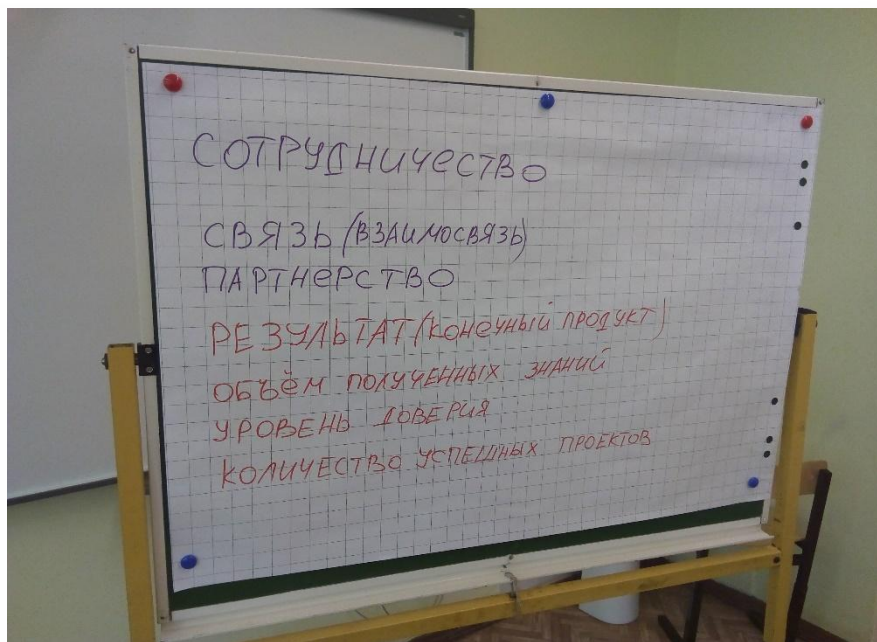 СОТРУДНИЧЕСТВО
СВЯЗЬ (ВЗАИМОСВЯЗЬ)
ПАРТНЕРСТВО
РЕЗУЛЬТАТ (КОНЕЧНЫЙ ПРОДУКТ)
ОБЪЁМ ПОЛУЧЕННЫХ ЗНАНИЙ
УРОВЕНЬ ДОВЕРИЯ
КОЛИЧЕСТВО УСПЕШНЫХ ПРОЕКТОВ